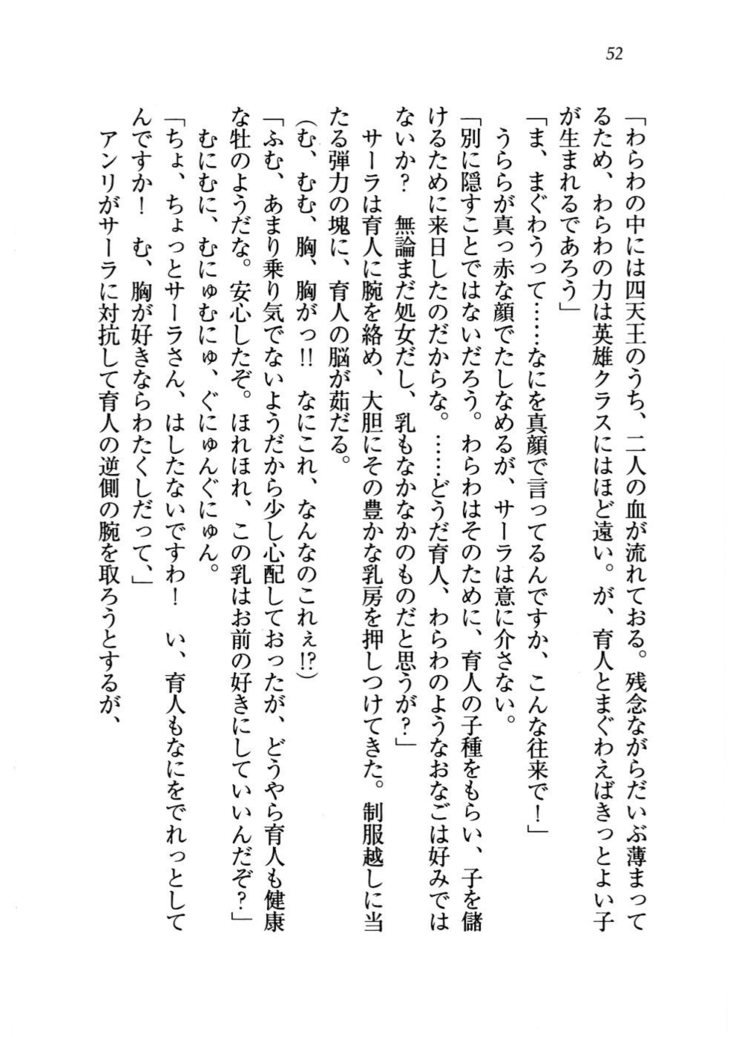 52
「わらわの中には四天王のうち、二人の血が流れておる。残念ながらだいぶ薄まって
るため、わらわの力は英雄クラスにはほど遠い。が、育人とまぐわえばきっとよい子
が生まれるであろう」
「ま、まぐわうって……なにを真顔で言ってるんですか、こんな往来で！」
うららが真っ赤な顔でたしなめるが、サーラは意に介さない。
「別に隠すことではないだろう。わらわはそのために、育人の子種をもらい、子を儲
けるために来日したのだからな。……どうだ育人、わらわのようなおなごは好みでは
ないか？　無論まだ処女だし、乳もなかなかのものだと思うが？」
サーラは育人に腕を絡め、大胆にその豊かな乳房を押しつけてきた。制服越しに当
たる弾力の塊に、育人の脳が茹だる。
(む、むむ、胸、胸がっ!!　なにこれ、なんなのこれぇ!?)
「ふむ、あまり乗り気でないようだから少し心配しておったが、どうやら育人も健康
な牡のようだな。安心したぞ。ほれほれ、この乳はお前の好きにしていいんだぞ？」
むにむに、むにゅむにゅ、ぐにゅんぐにゅん。
「ちょ、ちょっとサーラさん、はしたないですわ！　い、育人もなにをでれっとして
んですか！　む、胸が好きならわたくしだって、」
アンリがサーラに対抗して育人の逆側の腕を取ろうとするが、